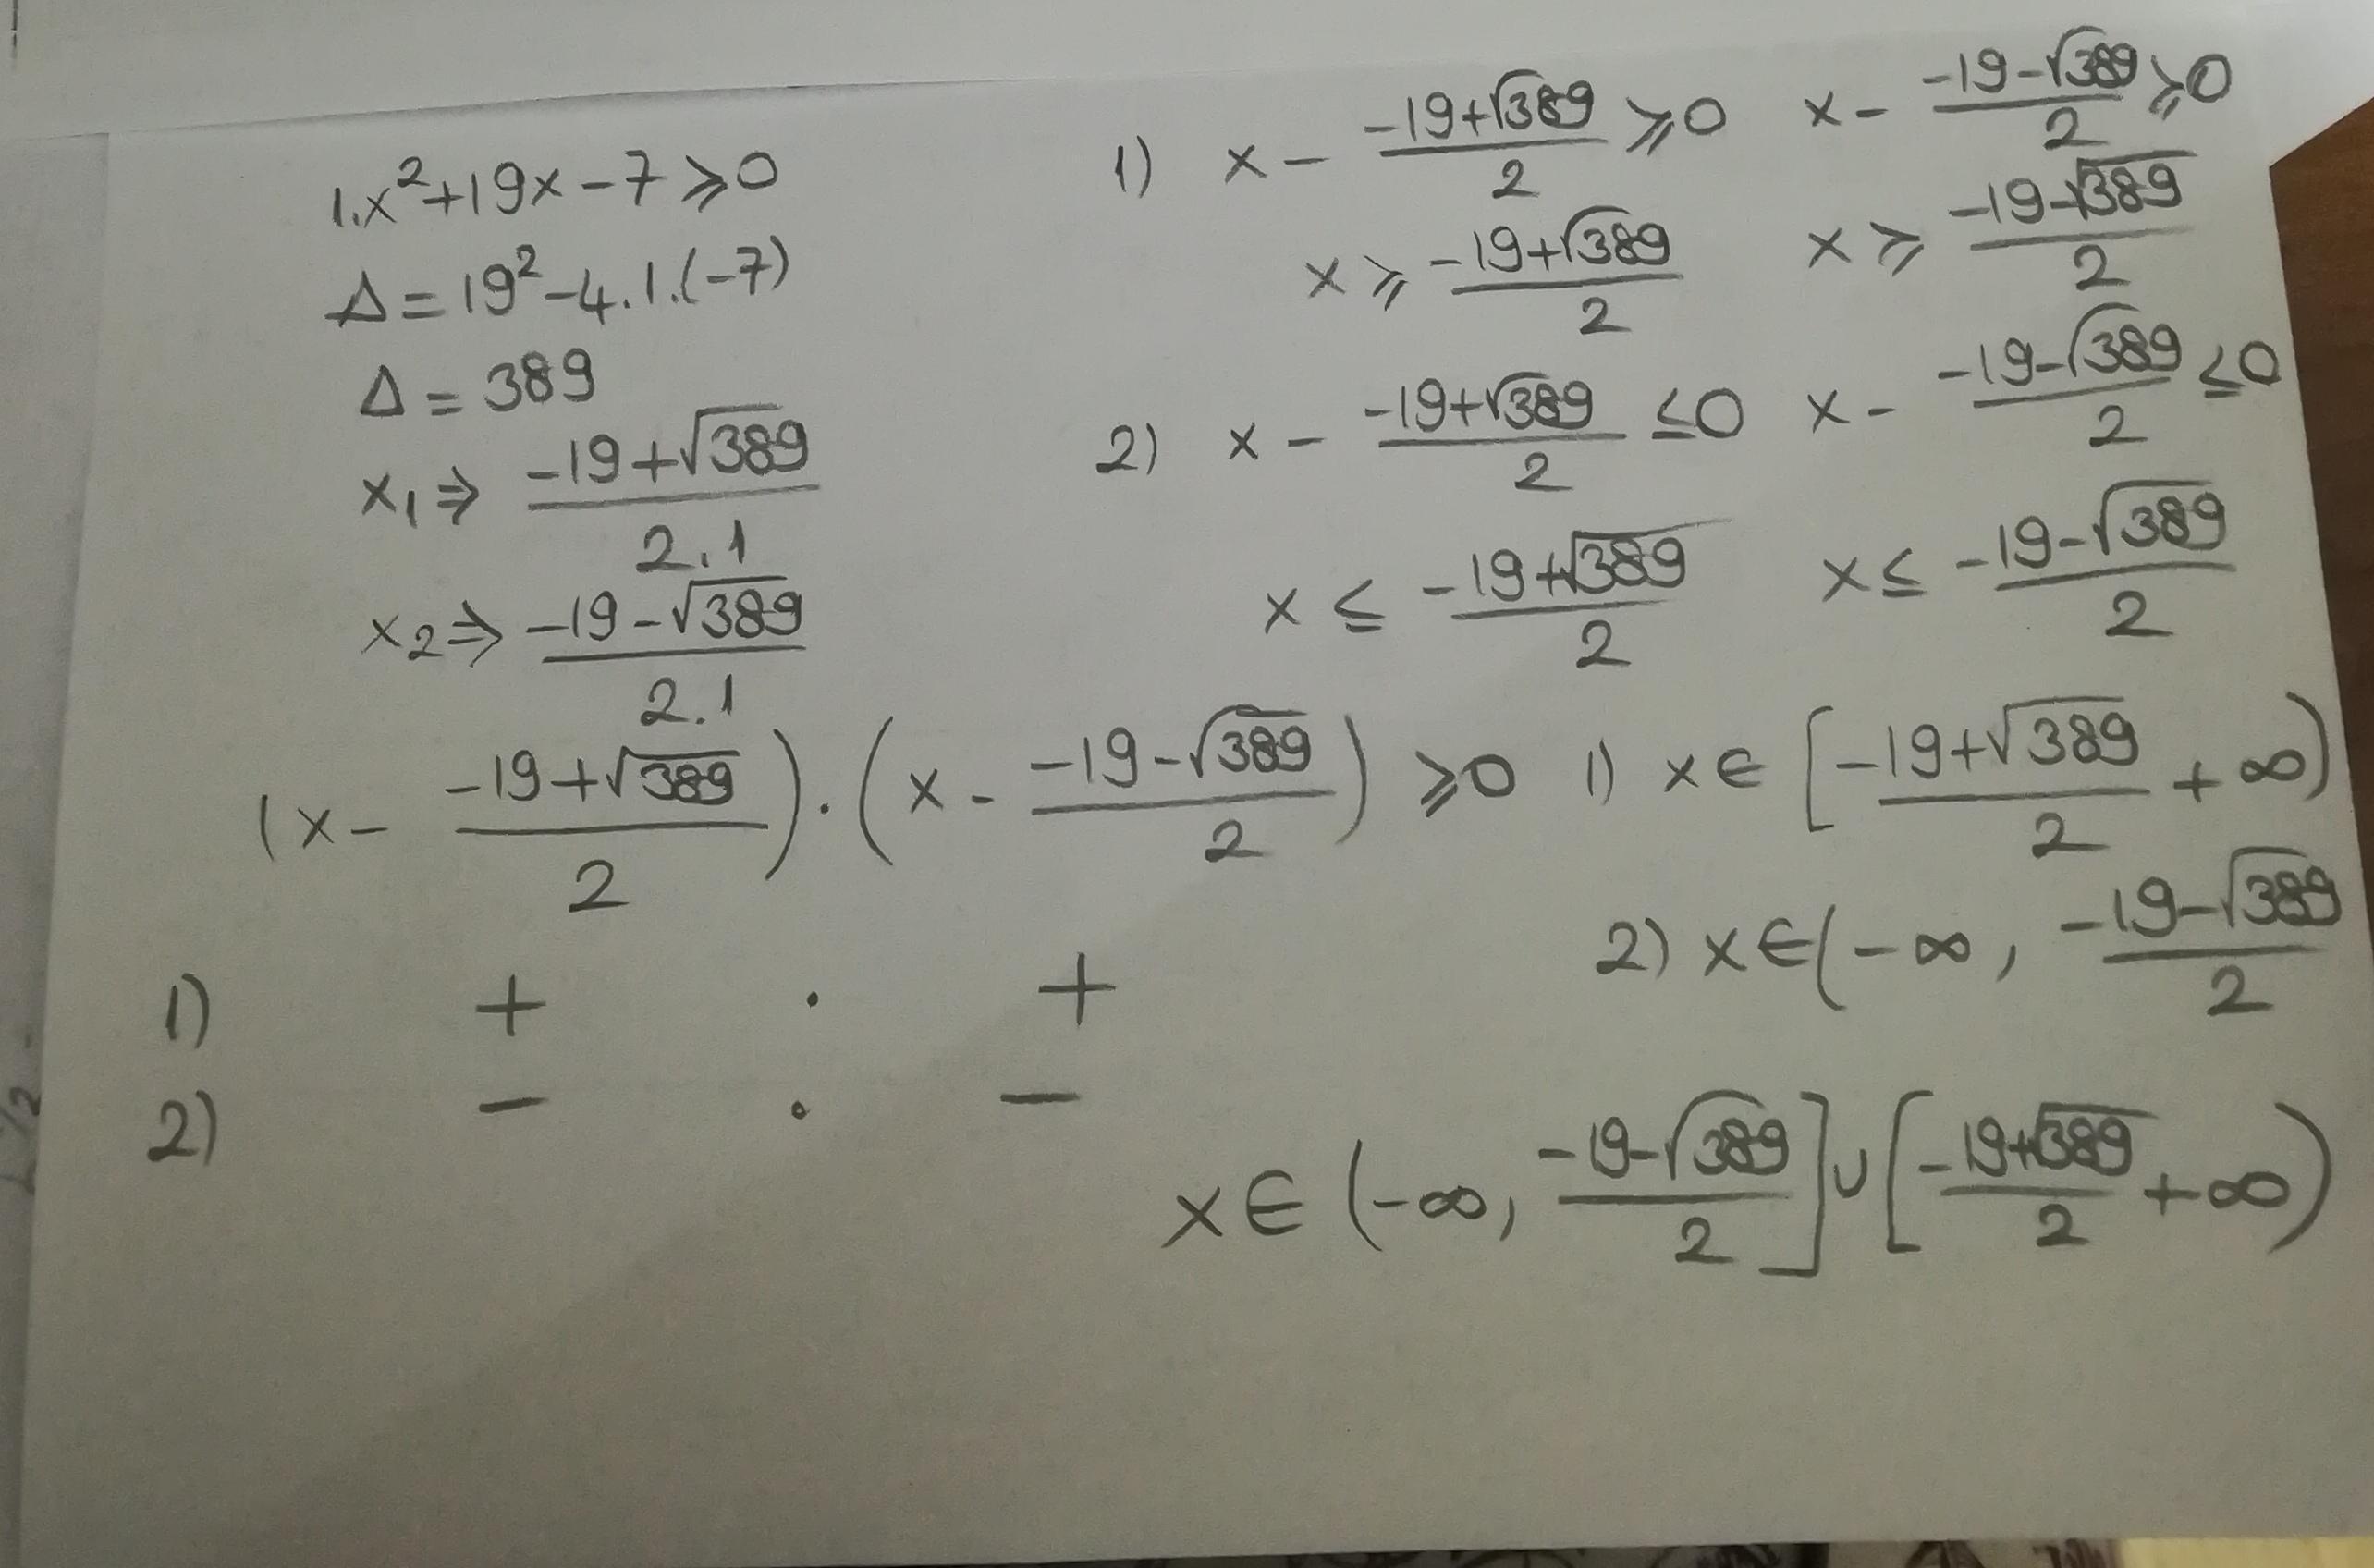 1.x²+19x-7⩾0
Δ=19²-4.1.(-7)
Δ=389
x₁⇒ (-19+√389)/(2.1)
x₂⇒ (-19-√389)/(2.1)
(x- (-19+√389)/2).(x- (-19-√389)/2)⩾0
1) + . +
2) - . -
1) x- (-19+√389)/2 ⩾0 x- (-19-√389)/2 ⩾0
x⩾ (-19+√389)/2 x⩾ (-19-√389)/2
2) x- (-19+√389)/2 ≤0 x- (-19-√389)/2 ≤0
x≤ (-19+√389)/2 x≤ (-19-√389)/2
1) x∈[(-19+√389)/2 +∞)
2) x∈(-∞, (-19-√389)/2
x∈(-∞, (-19-√389)/2]∪[(-19+√389)/2 +∞)